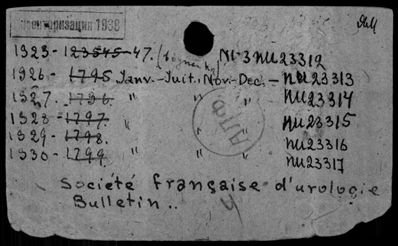 Инвентаризация 1938
1923 - 123545 - 47. № 3 пи 23312
1926 - 1795 Janv.-Juil. Nov.-Dec. - пи 23313
1927. 1796. " " пи 23314
1928 - 1797. " " пи 23315
1929 - 1798. " " пи 23316
1930 - 1799. " " пи 23317
Société française d'urologie
Bulletin..